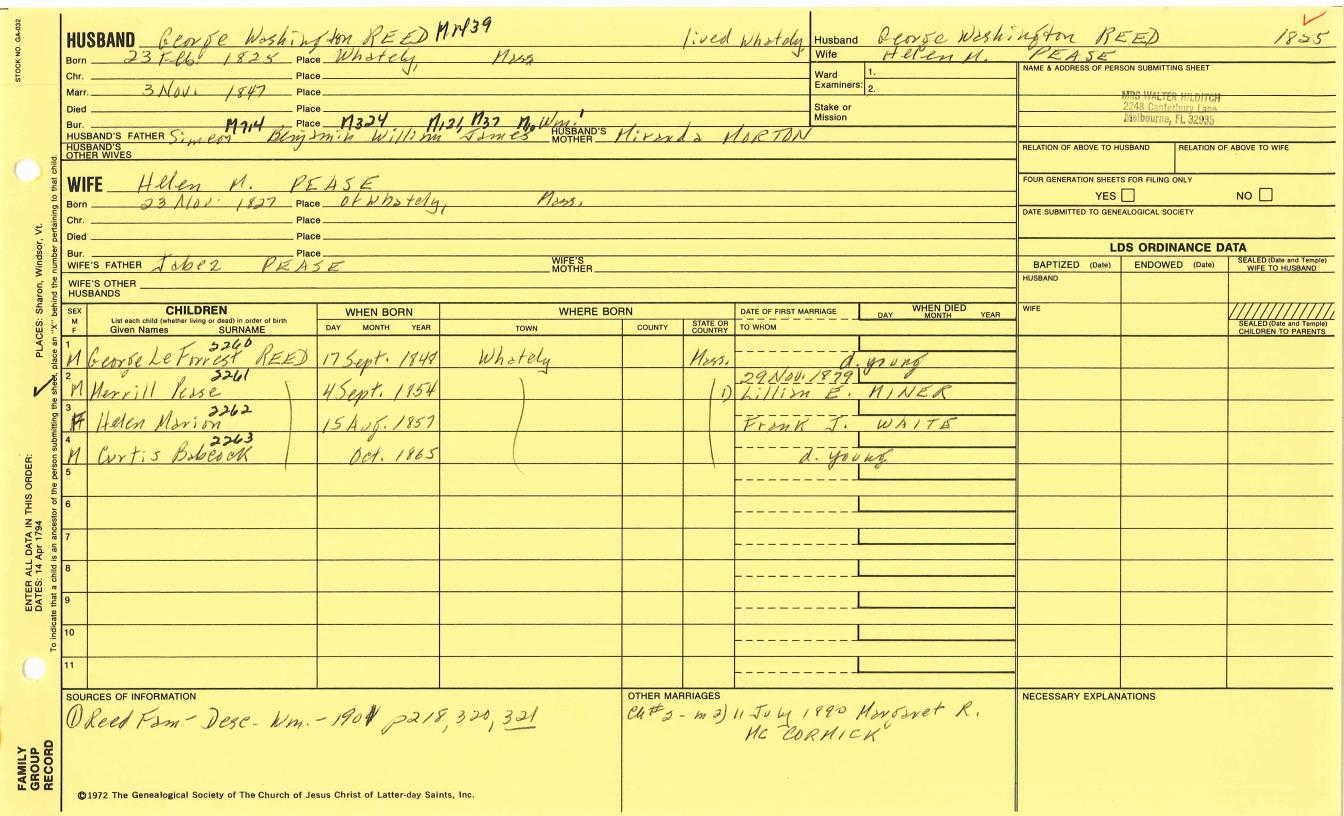 STOCK NO. GA-032
HUSBAND George Washington REED M1439 lived Whately
Born 23 Feb. 1825 Place Whately, Mass
Chr. Place
Marr. 3 Nov. 1847 Place
Died Place
Bur. Place
M714 M324 M121 M37 M10 Wm.1
HUSBAND'S FATHER Simeon Benjamin William James HUSBAND'S MOTHER Miranda MORTON
HUSBAND'S OTHER WIVES
WIFE Helen M. PEASE
Born 23 Nov. 1827 Place of Whately, Mass.
Chr. Place
Died Place
Bur. Place
WIFE'S FATHER Jabez PEASE WIFE'S MOTHER
WIFE'S OTHER HUSBANDS
Husband George Washington REED 1825
Wife Helen M. PEASE
Ward Examiners: 1.
2.
Stake or Mission
NAME & ADDRESS OF PERSON SUBMITTING SHEET
MRS WALTER HILDITCH
2248 Canterbury Lane
Melbourne, FL 32935
RELATION OF ABOVE TO HUSBAND RELATION OF ABOVE TO WIFE
FOUR GENERATION SHEETS FOR FILING ONLY
YES NO
DATE SUBMITTED TO GENEALOGICAL SOCIETY
LDS ORDINANCE DATA
BAPTIZED (Date) ENDOWED (Date) SEALED (Date and Temple) WIFE TO HUSBAND
HUSBAND
WIFE
SEALED (Date and Temple) CHILDREN TO PARENTS
SEX M F
CHILDREN
List each child (whether living or dead) in order of birth
Given Names SURNAME
WHEN BORN
DAY MONTH YEAR
WHERE BORN
TOWN COUNTY STATE OR COUNTRY
DATE OF FIRST MARRIAGE
TO WHOM
WHEN DIED
DAY MONTH YEAR
1 2260
M George LeForrest REED 17 Sept. 1848 Whately Mass. d. young
2 2261 29 Nov. 1879
M Merrill Pease 4 Sept. 1854 1) Lillian E. MINER
3 2262
F Helen Marion 15 Aug. 1857 Frank J. WAITE
4 2263
M Curtis Babcock Oct. 1865 d. young
5
6
7
8
9
10
11
SOURCES OF INFORMATION
① Reed Fam- Desc- Wm.- 1901 p218, 320, 321
OTHER MARRIAGES
Ch#2 - m 2) 11 July 1890 Margaret R.
MC CORMICK
NECESSARY EXPLANATIONS
©1972 The Genealogical Society of The Church of Jesus Christ of Latter-day Saints, Inc.
FAMILY GROUP RECORD
ENTER ALL DATA IN THIS ORDER:
DATES: 14 Apr 1794
PLACES: Sharon, Windsor, Vt.
To indicate that a child is an ancestor of the person submitting the sheet, place an "X" behind the number pertaining to that child.